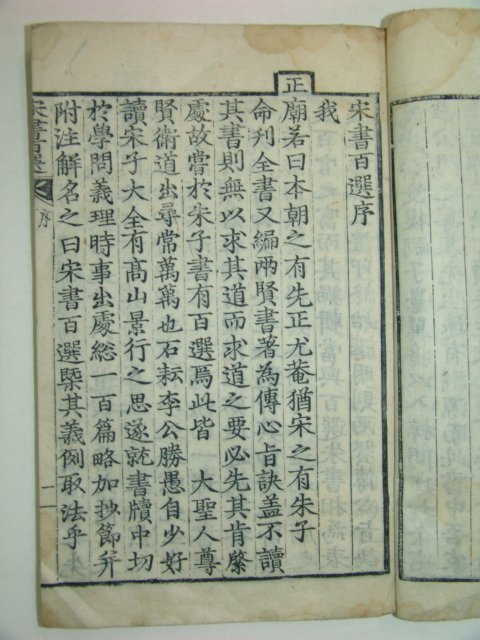 宋書百選序
我
正
廟若曰本朝之有先正尤菴猶宋之有朱子
命刊全書又編兩賢書著為傳心旨訣盖不讀
其書則無以求其道而求道之要必先其肯綮
處故嘗於朱子書有百選焉此皆 大聖人尊
賢衛道出尋常萬萬也石耘李公勝愚自少好
讀宋子大全有高山景行之思遂就書牘中切
於學問義理時事出處総一百篇略加抄節并
附注解名之曰宋書百選槩其義例取法乎
宋書百選 序 一